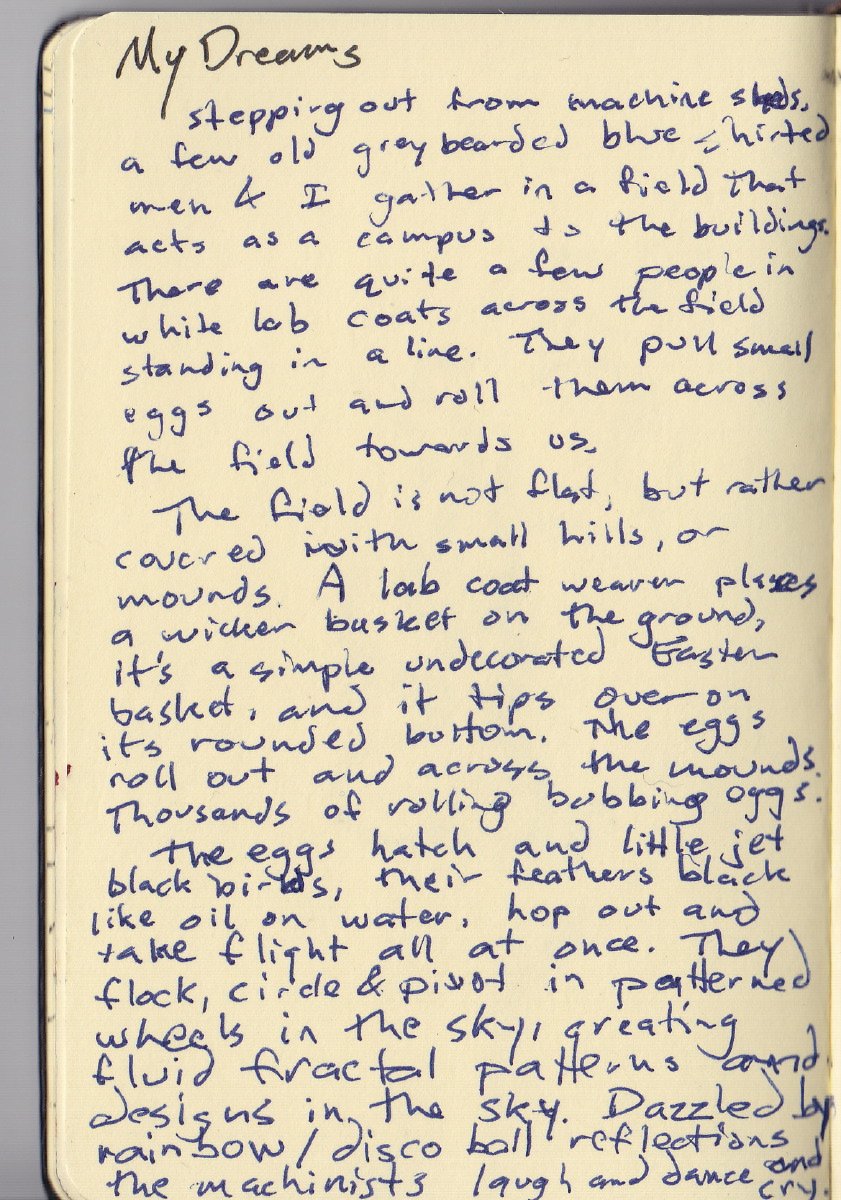 My Dreams
stepping out from machine sheds,
a few old grey bearded blue shirted
men & I gather in a field that
acts as a campus to the buildings.
There are quite a few people in
white lab coats across the field
standing in a line. They pull small
eggs out and roll them across
the field towards us.
The field is not flat, but rather
covered with small hills, or
mounds. A lab coat wearer places
a wicker basket on the ground,
it's a simple undecorated Easter
basket, and it tips over on
its rounded bottom. The eggs
roll out and across the mounds.
Thousands of rolling bobbing eggs.
The eggs hatch and little jet
black birds, their feathers black
like oil on water, hop out and
take flight all at once. They
flock, circle & pivot in patterned
wheels in the sky, creating
fluid fractal patterns and
designs in the sky. Dazzled by
rainbow / disco ball reflections
the machinists laugh and dance and
cry.